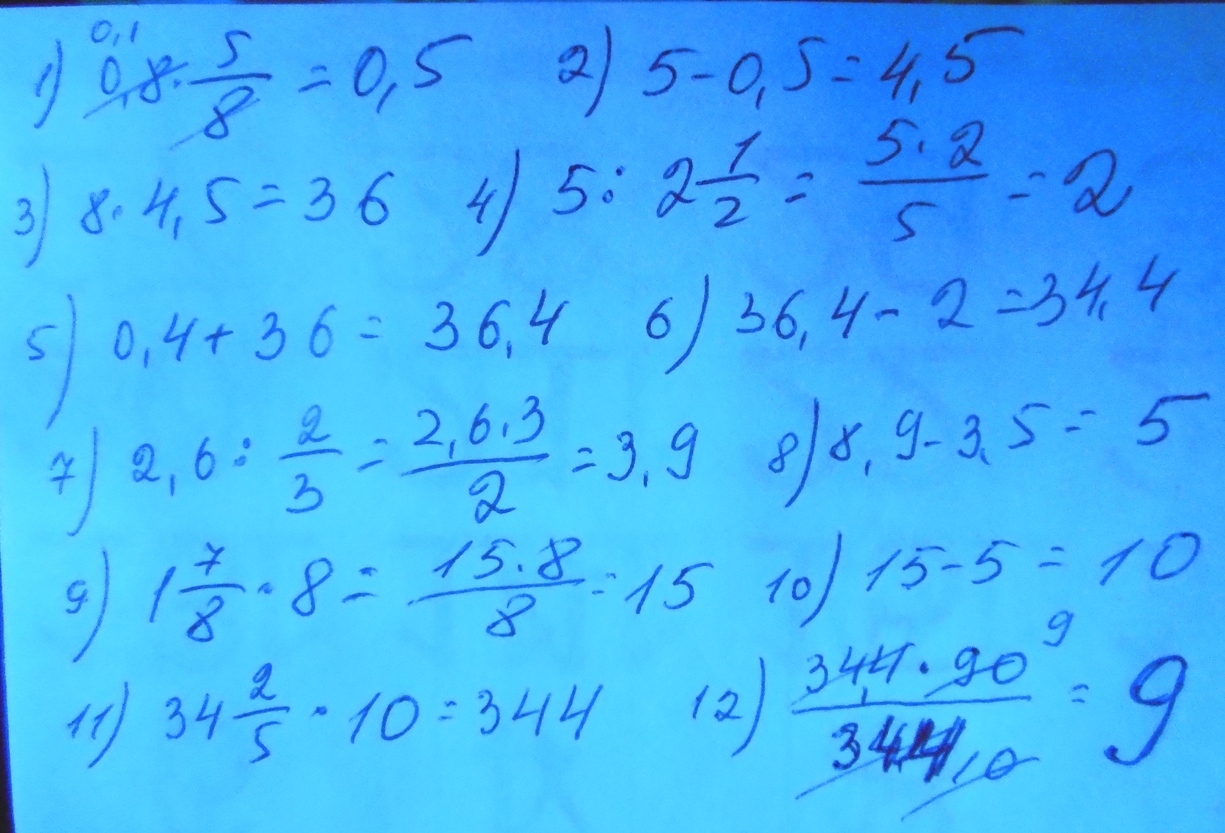 1) 0,8 · 5/8 = 0,5 2) 5 - 0,5 = 4,5
0,1
3) 8 · 4,5 = 36 4) 5 : 2 1/2 = 5 · 2/5 = 2
5) 0,4 + 36 = 36,4 6) 36,4 - 2 = 34,4
7) 2,6 : 2/3 = 2,6 · 3/2 = 3,9 8) 8,9 - 3,5 = 5
9) 1 7/8 · 8 = 15 · 8/8 = 15 10) 15 - 5 = 10
11) 34 2/5 · 10 = 344 12) 34,4 · 90/344 10 = 9
9